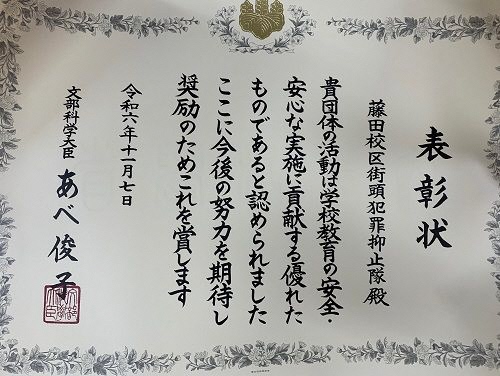 表彰状
藤田校区街頭犯罪抑止隊殿
貴団体の活動は学校教育の安全・
安心な実施に貢献する優れた
ものであると認められました
ここに今後の努力を期待し
奨励のためこれを賞します
令和六年十一月七日
文部科学大臣 あべ俊子